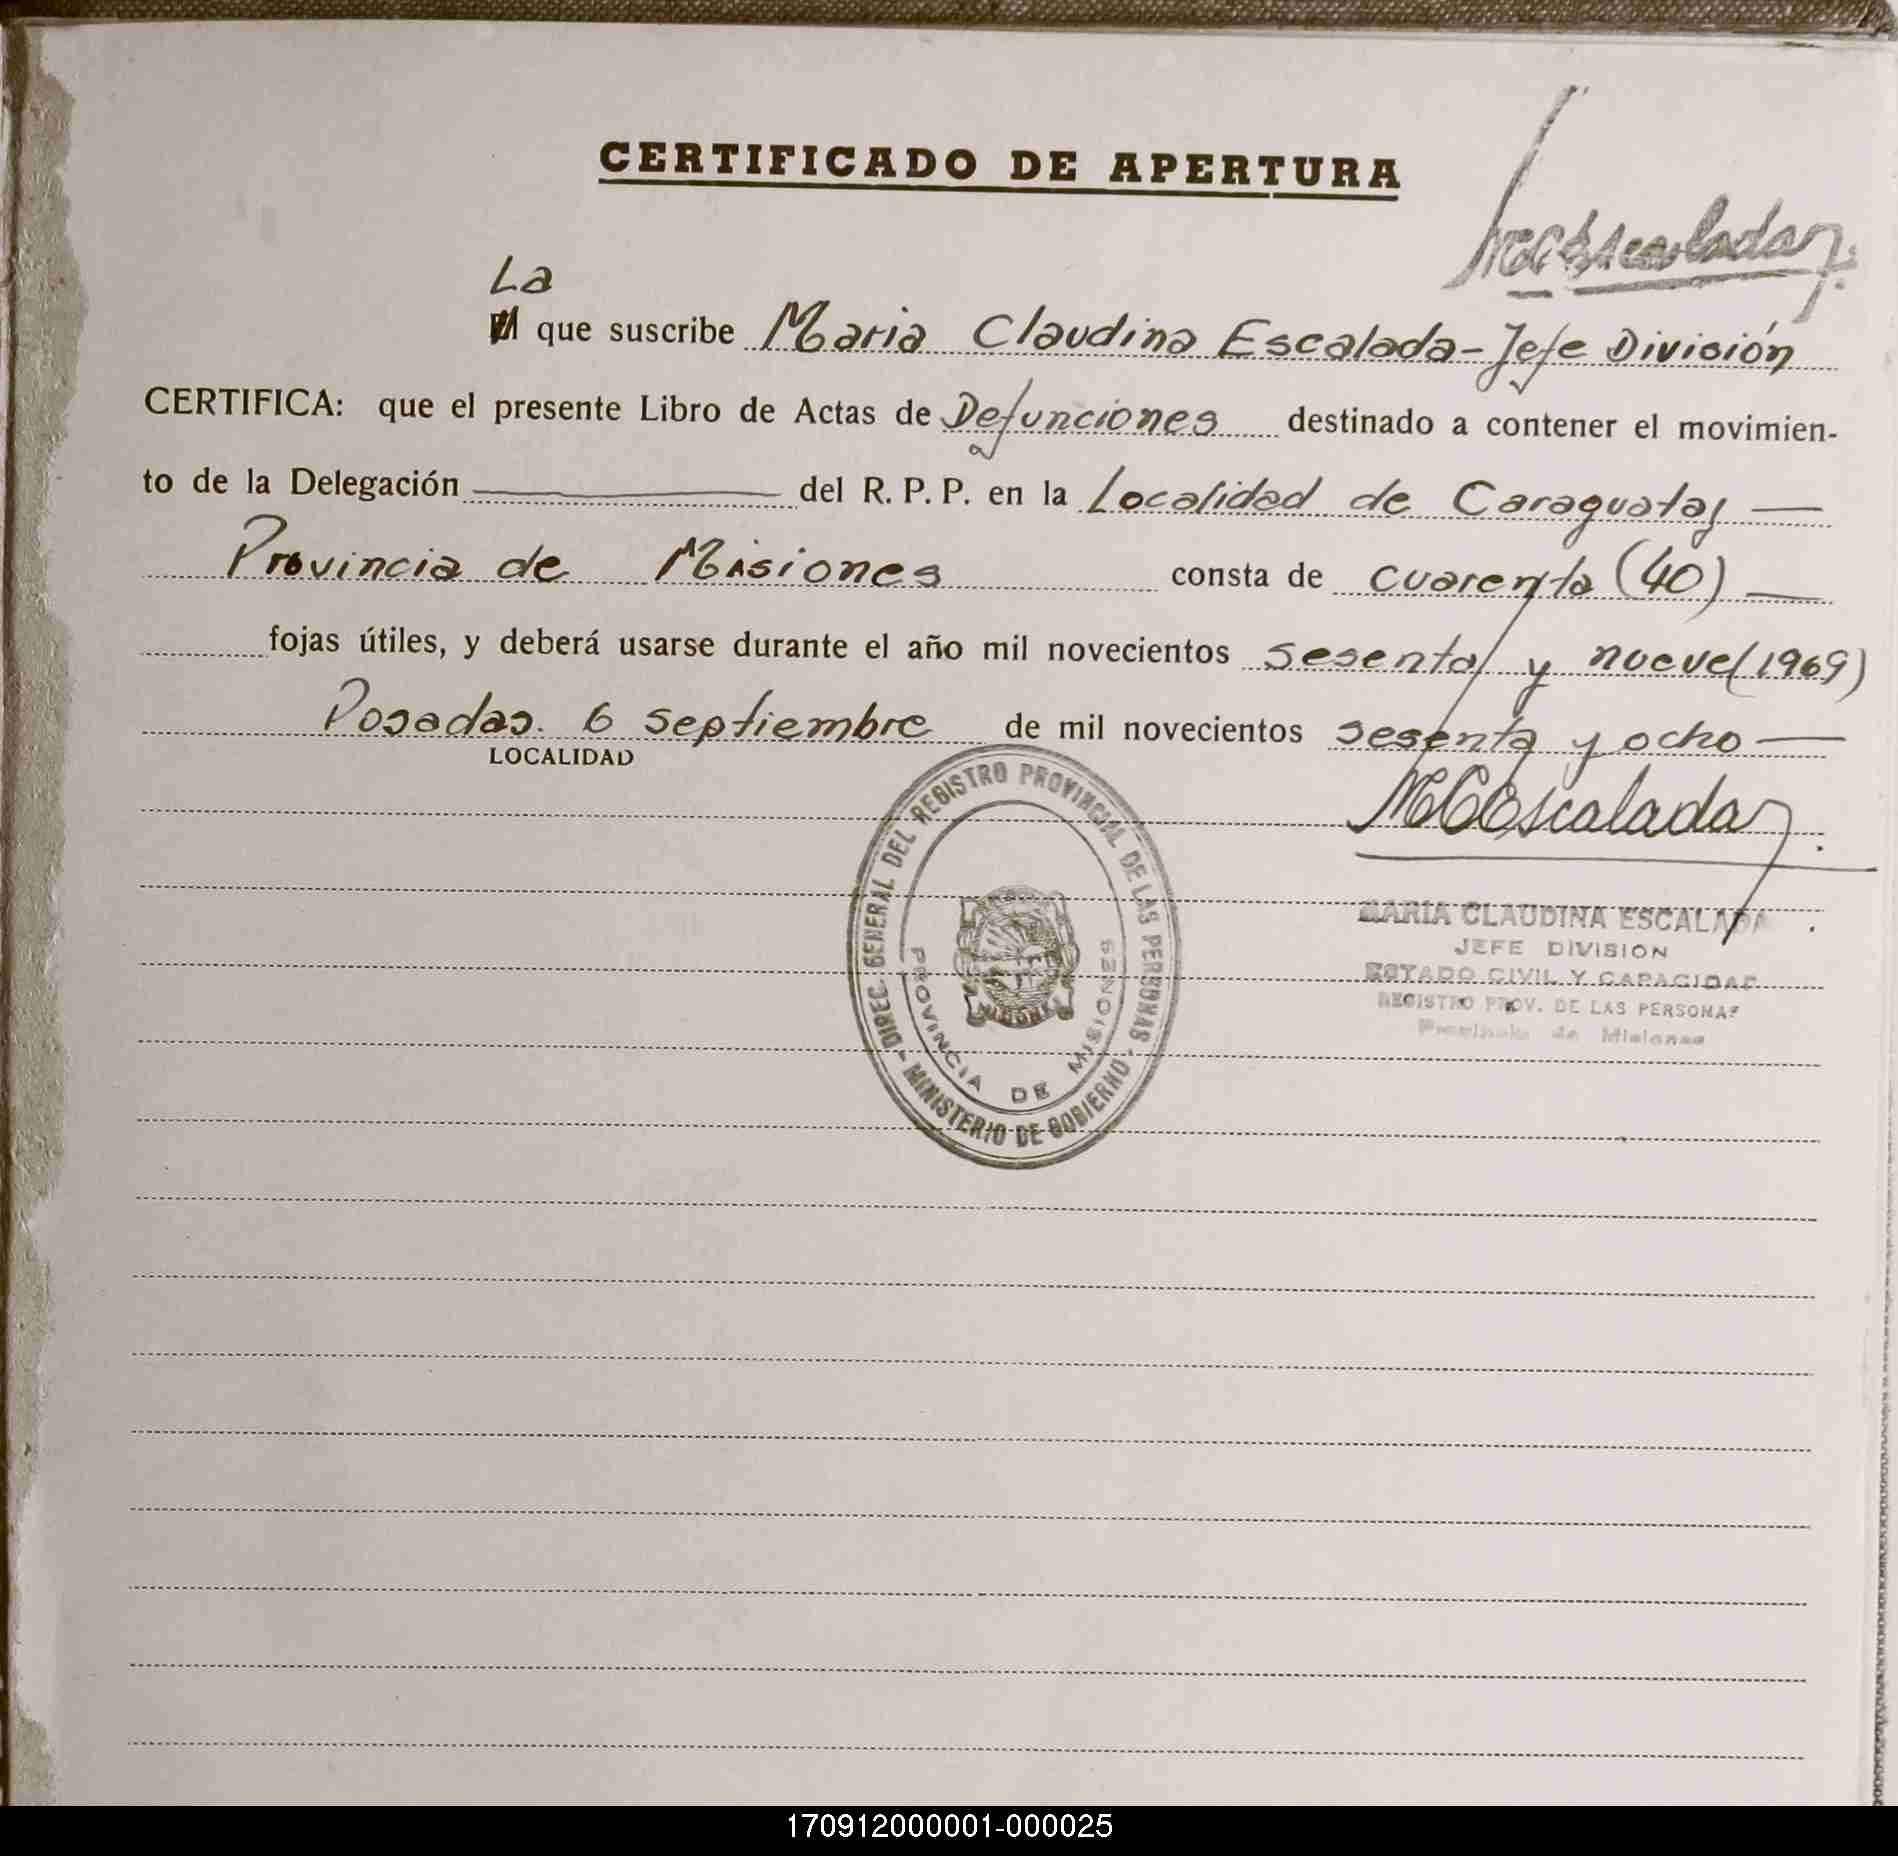 CERTIFICADO DE APERTURA
MCEscalada
La
El que suscribe Maria Claudina Escalada - Jefe División
CERTIFICA: que el presente Libro de Actas de Defunciones destinado a contener el movimien-
to de la Delegación del R. P. P. en la Localidad de Caraguatay
Provincia de Misiones consta de cuarenta (40)
fojas útiles, y deberá usarse durante el año mil novecientos sesenta y nueve (1969)
Posadas. 6 septiembre de mil novecientos sesenta y ocho
LOCALIDAD
MCEscalada
DIREC. GENERAL DEL REGISTRO PROVINCIAL DE LAS PERSONAS
- MINISTERIO DE GOBIERNO -
PROVINCIA DE MISIONES
MISIONES
MARIA CLAUDINA ESCALADA
JEFE DIVISION
ESTADO CIVIL Y CAPACIDAD
REGISTRO PROV. DE LAS PERSONAS
Provincia de Misiones
170912000001-000025